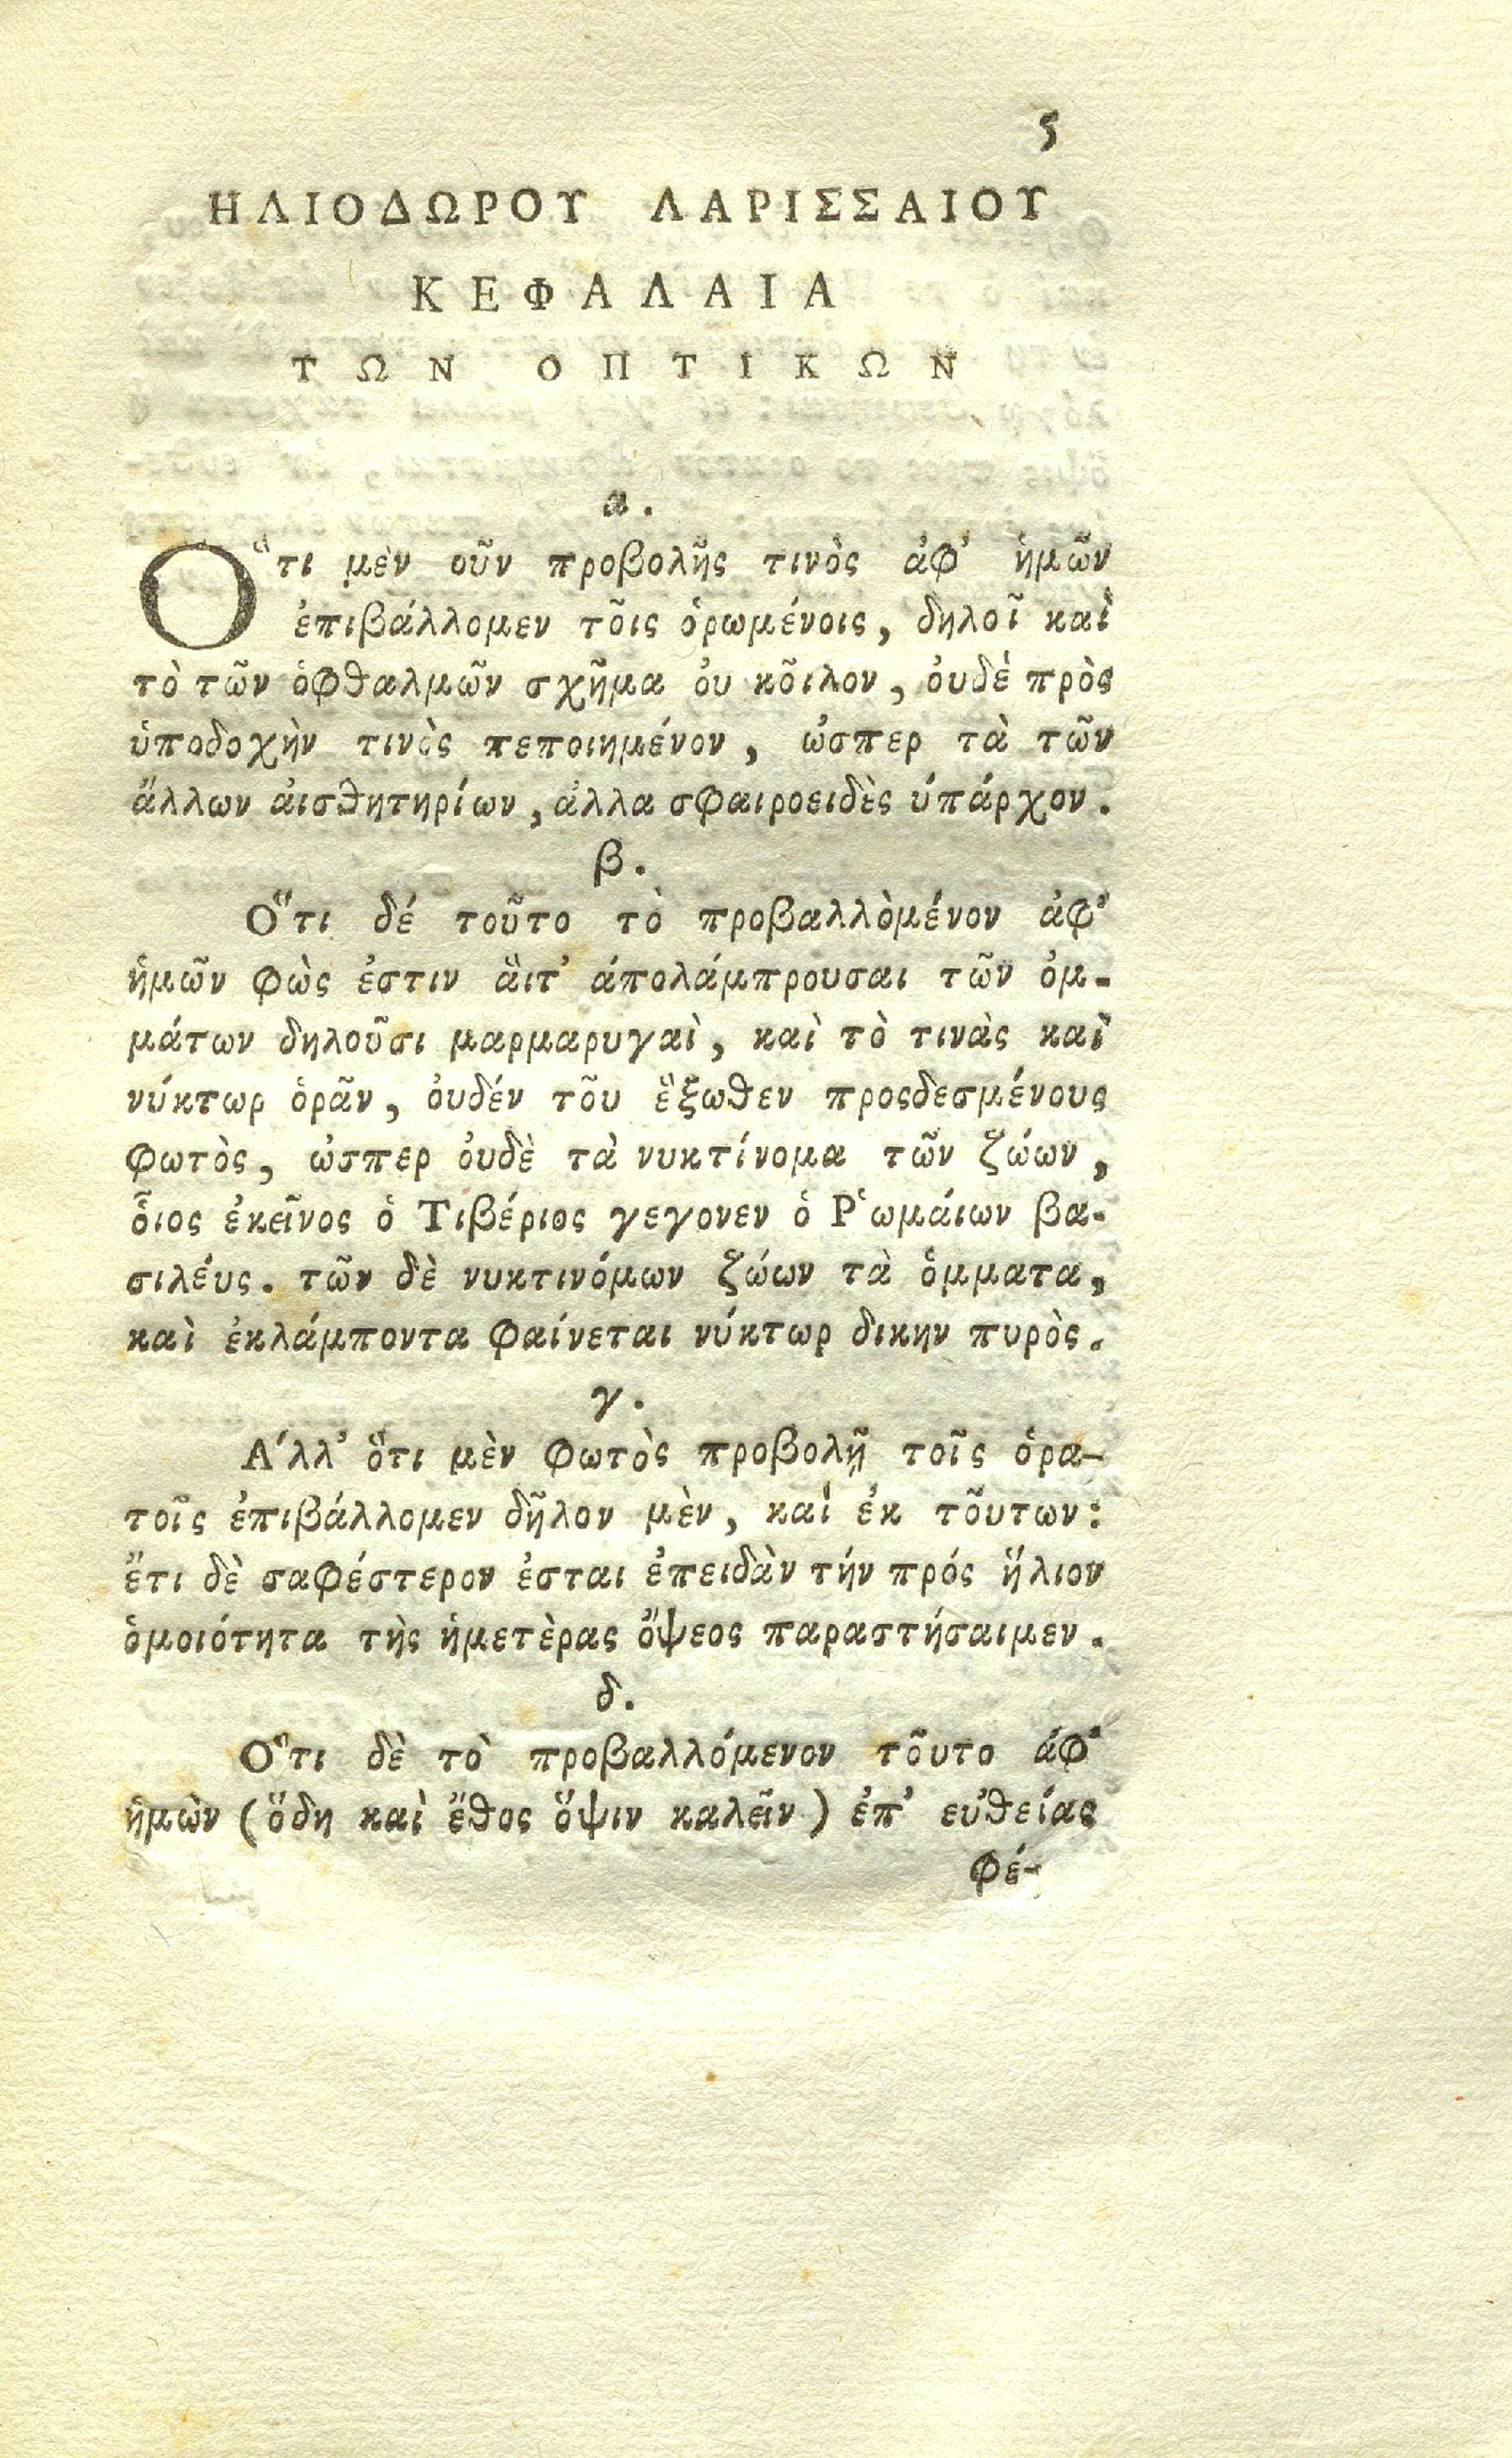 5
ΗΛΙΟΔΩΡΟΥ ΛΑΡΙΣΣΑΙΟΥ
ΚΕΦΑΛΑΙΑ
ΤΩΝ ΟΠΤΙΚΩΝ
α.
Ὅτι μὲν οῦν προβολῆς τινὸς ἀφ' ἡμῶν
ἐπιβάλλομεν τõις ὁρωμένοις, δηλοῖ καὶ
τὸ τῶν ὀφθαλμῶν σχῆμα ὀυ κõιλον, ὀυδὲ πρὸς
ὑποδοχὴν τινὸς πεποιημένον, ὠσπερ τὰ τῶν
ἄλλων ἀισθητηρίων, ἀλλα σφαιροειδὲς ὑπάρχον.
β.
Ὅτι δέ τοῦτο τὸ προβαλλὸμένον ἀφ'
ἡμῶν φὼς ἐστιν ἅιτ' άπολάμπρουσαι τῶν ὀμ-
μάτων δηλοῦσι μαρμαρυγαὶ, καὶ τὸ τινὰς καὶ
νύκτωρ ὁρᾶν, ὀυδέν τõυ ἔξωθεν προςδεσμένους
φωτὸς, ὠσπερ ὀυδὲ τὰ νυκτίνομα τῶν ζώων,
ὃιος ἐκεῖνος ὁ Τιβέριος γεγονεν ὁ Ῥωμάιων βα-
σιλέυς. τῶν δὲ νυκτινόμων ζώων τὰ ὀμματα,
καὶ ἐκλάμποντα φαίνεται νύκτωρ δικην πυρὸς.
γ.
Ἄλλ' ὅτι μὲν φωτὸς προβολῇ τοῖς ὁρα-
τοῖς ἐπιβάλλομεν δῆλον μὲν, καὶ ἐκ τõυτων:
ἔτι δὲ σαφέστερον ἐσται ἐπειδὰν τήν πρός ἥλιον
ὁμοιότητα τὴς ἡμετὲρας ὄψεος παραστήσαιμεν.
δ.
Ὅτι δὲ τὸ προβαλλόμενον τõυτο ἀφ'
ἡμὼν (ὅδη καὶ ἔθος ὄψιν καλεῖν) ἐπ' εὐθείας
φέ-